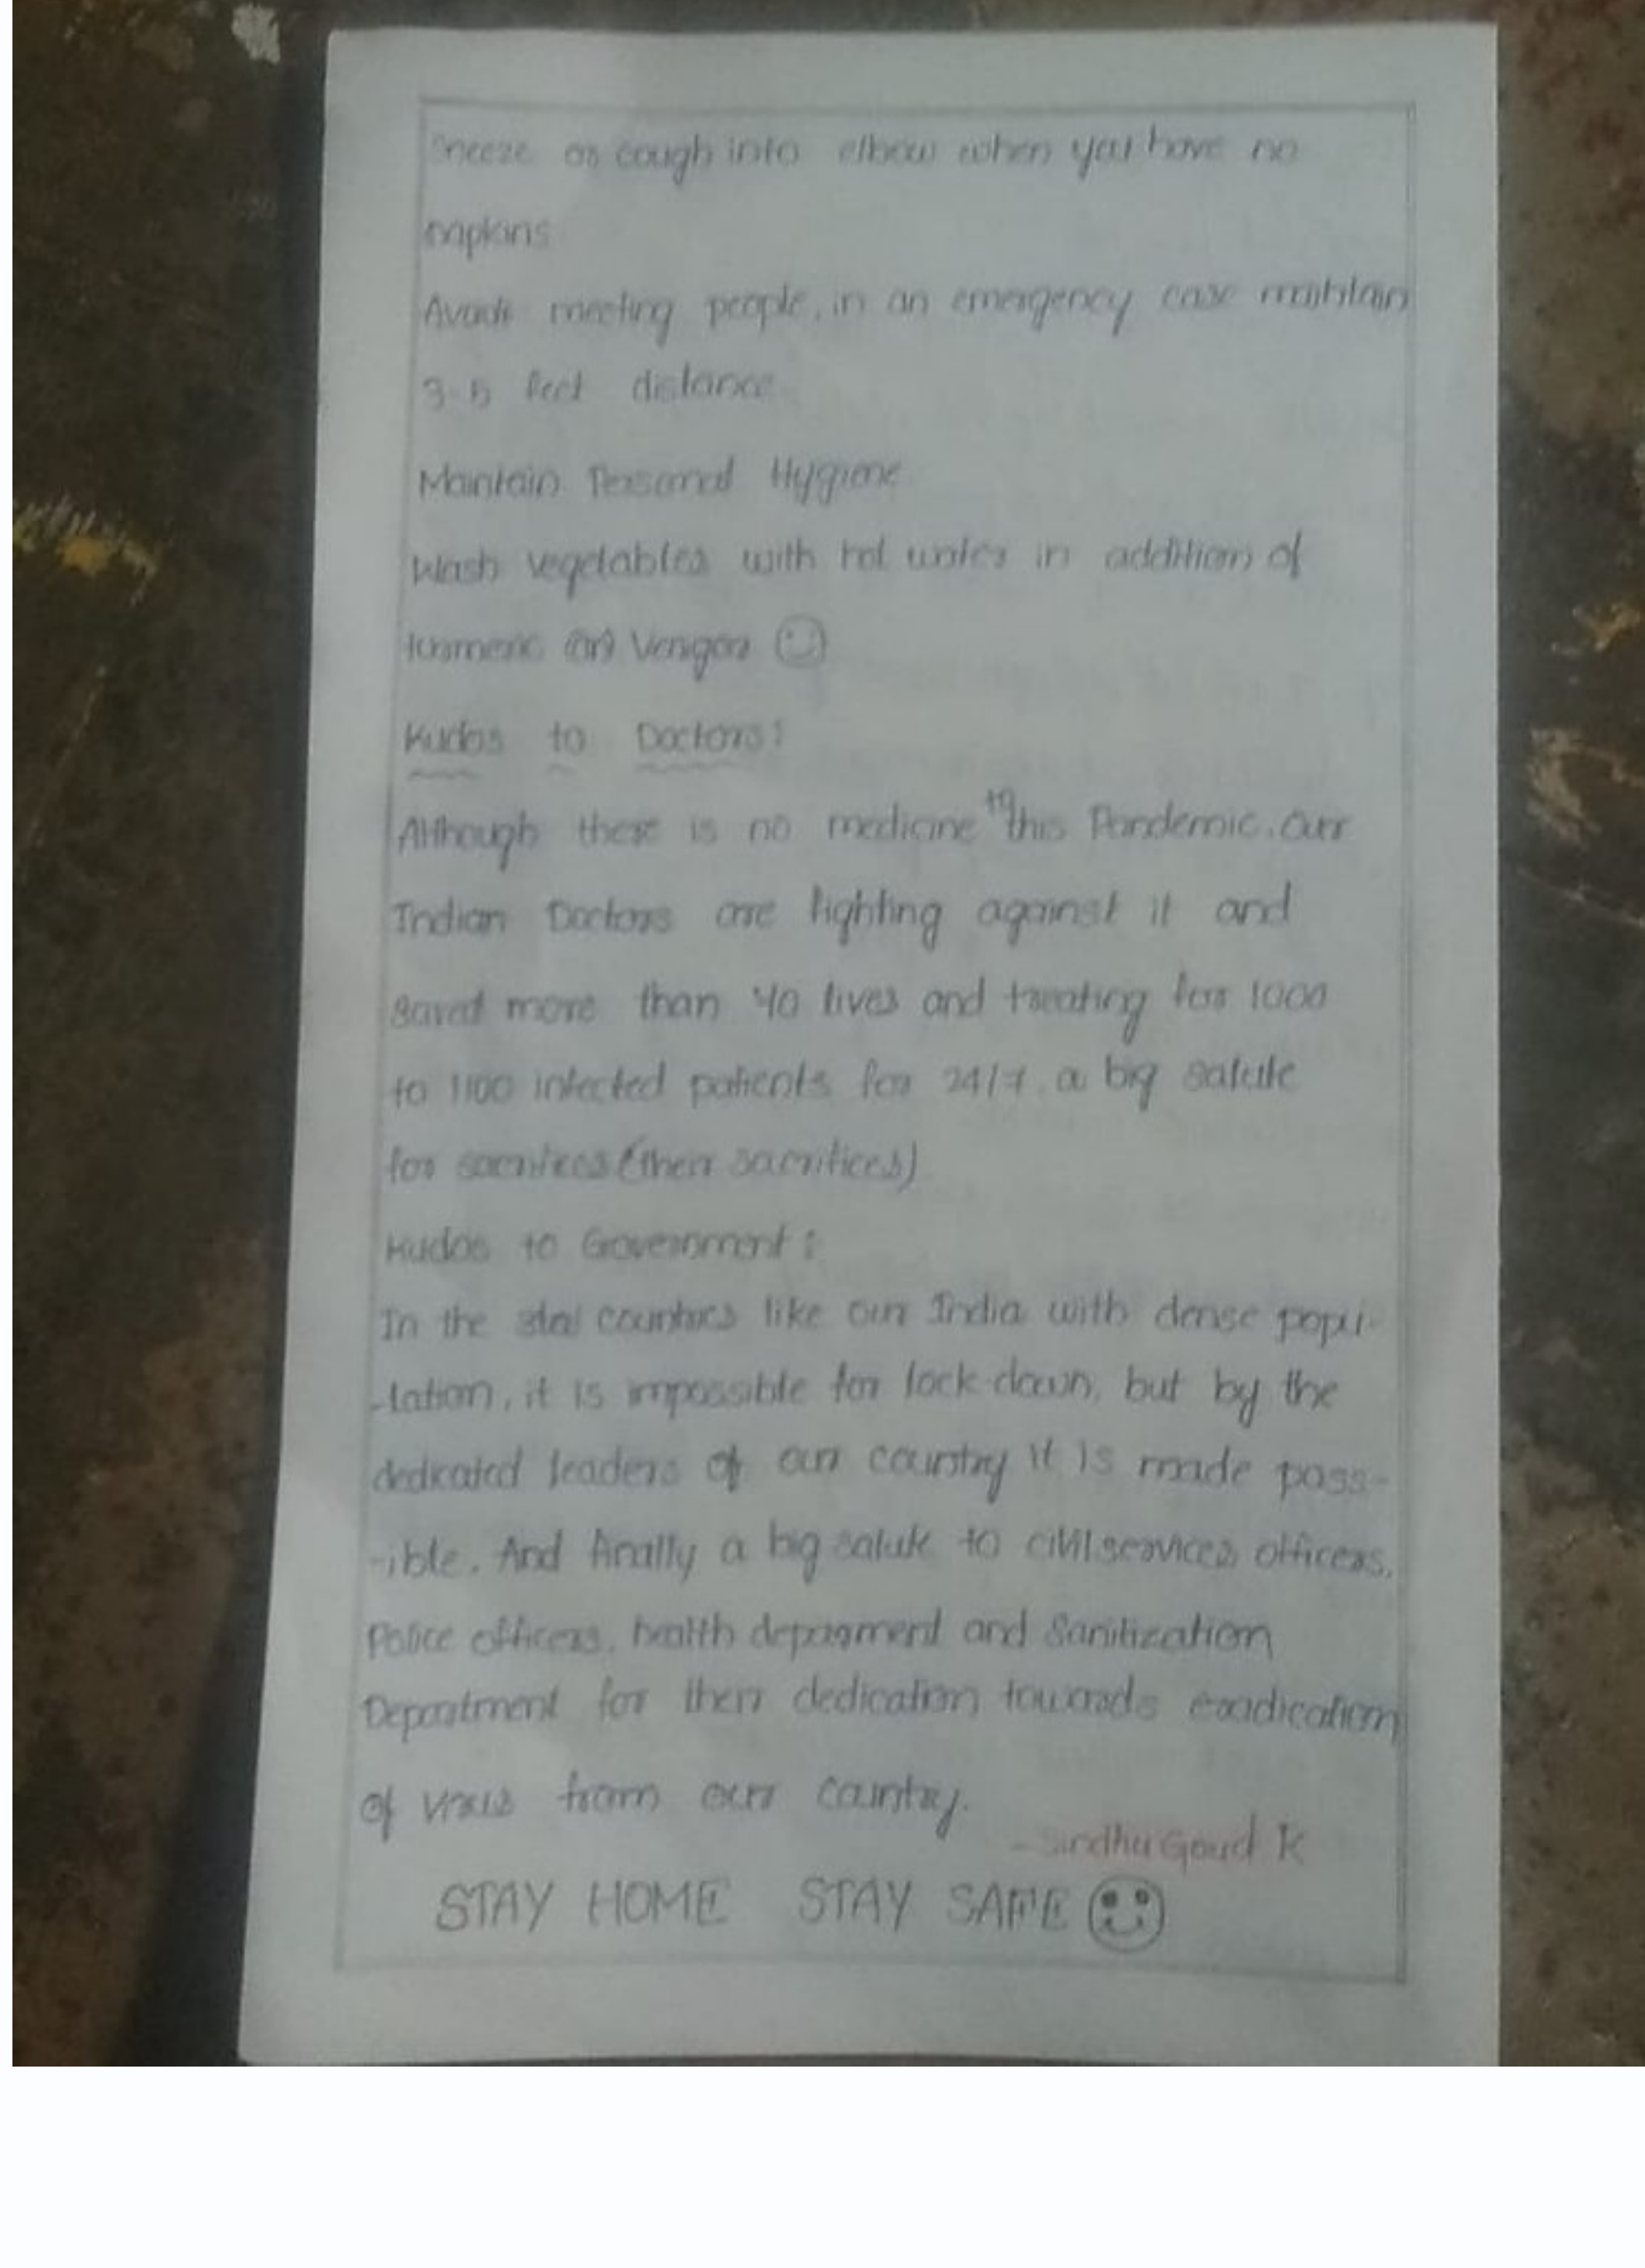 Sneeze or cough into elbow when you have no
napkins
Avoid meeting people, in an emergency case maintain
3-5 feet distance
Maintain Personal Hygiene
Wash vegetables with hot water in addition of
turmeric (or) Venigar ☺
Kudos to Doctors:
Although there is no medicine to this Pandemic. our
Indian Doctors are fighting against it and
saved more than 40 lives and treating for 1000
to 1100 infected patients for 24/7. a big salute
for sacrifices (their sacrifices)
Kudos to Government:
In the countries like our India with dense popu-
-lation, it is impossible for lock down, but by the
dedicated leaders of our country it is made poss-
-ible. And finally a big salute to civil services officers,
Police officers, health deparment and Sanitization
Department for their dedication towards eradication
of virus from our country.
- Sindhu Goud K
STAY HOME STAY SAFE ☺